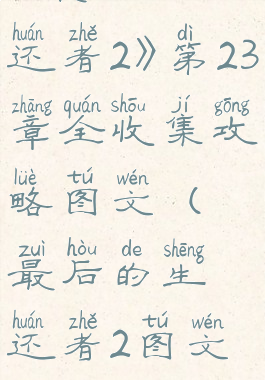 huán zhě dì
还者2》第23
zhāng quán shōu jí gōng
章全收集攻
lüè tú wén
略图文（
zuì hòu de shēng
最后的生
huán zhě tú wén
还者2图文